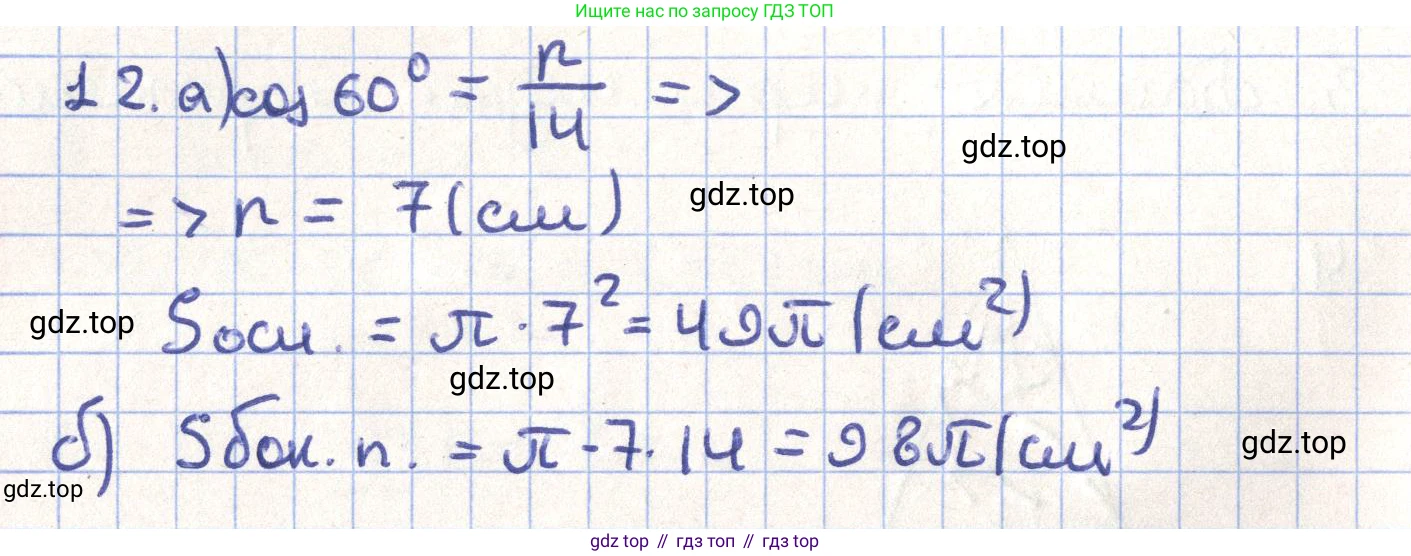 Ищите нас по запросу ГДЗ ТОП
12. а) cos 60° = r/14 =>
gdz.top
=> r = 7 (см)
gdz.top
gdz.top
Sосн. = π · 7² = 49π (см²)
gdz.top
б) Sбок. п. = π · 7 · 14 = 98π (см²)
gdz.top
gdz.top
gdz top // гдз топ // gdz top